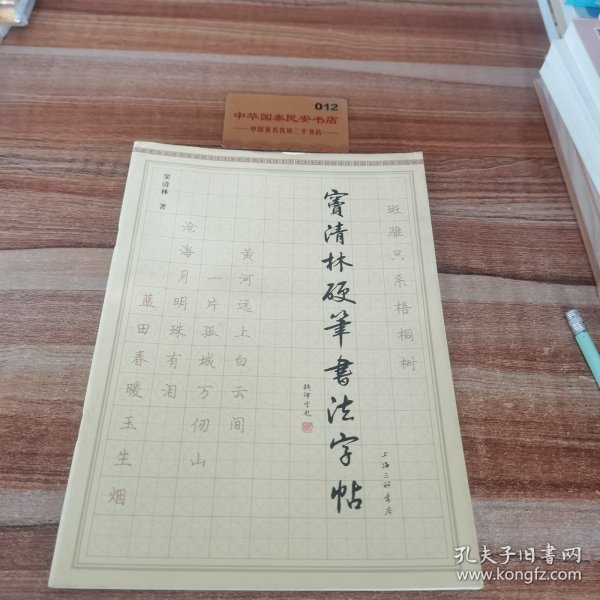 012
中华国泰民安书店
中国著名优秀二手书店
斑骓只系梧桐树
竇清林硬筆書法字帖
上海三联书店
黄河远上白云间
一片孤城万仞山
沧海月明珠有泪
蓝田春暖玉生烟
窦清林 著
孔夫子旧书网
www.kongfz.com